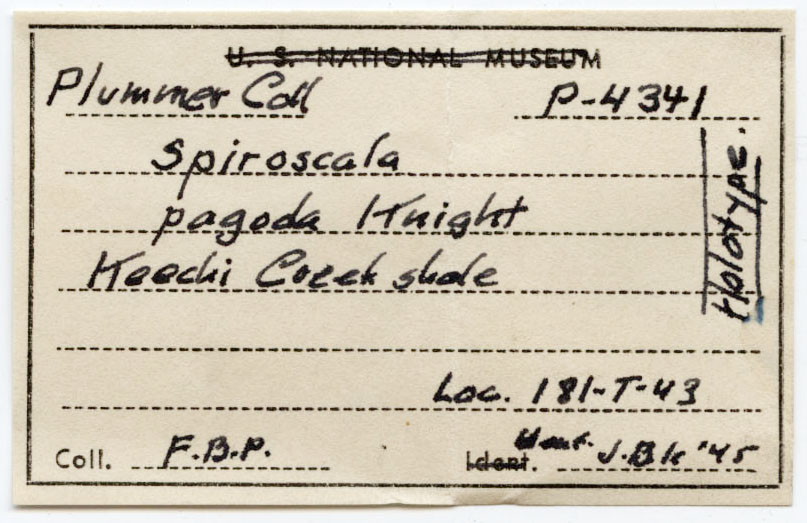 U. S. NATIONAL MUSEUM
Plummer Coll P-4341
Spiroscala
pagoda Knight
Holotype.
Keechi Creek shale
Loc. 181-T-43
Coll. F.B.P. Ident. Ident. J.B.K '45